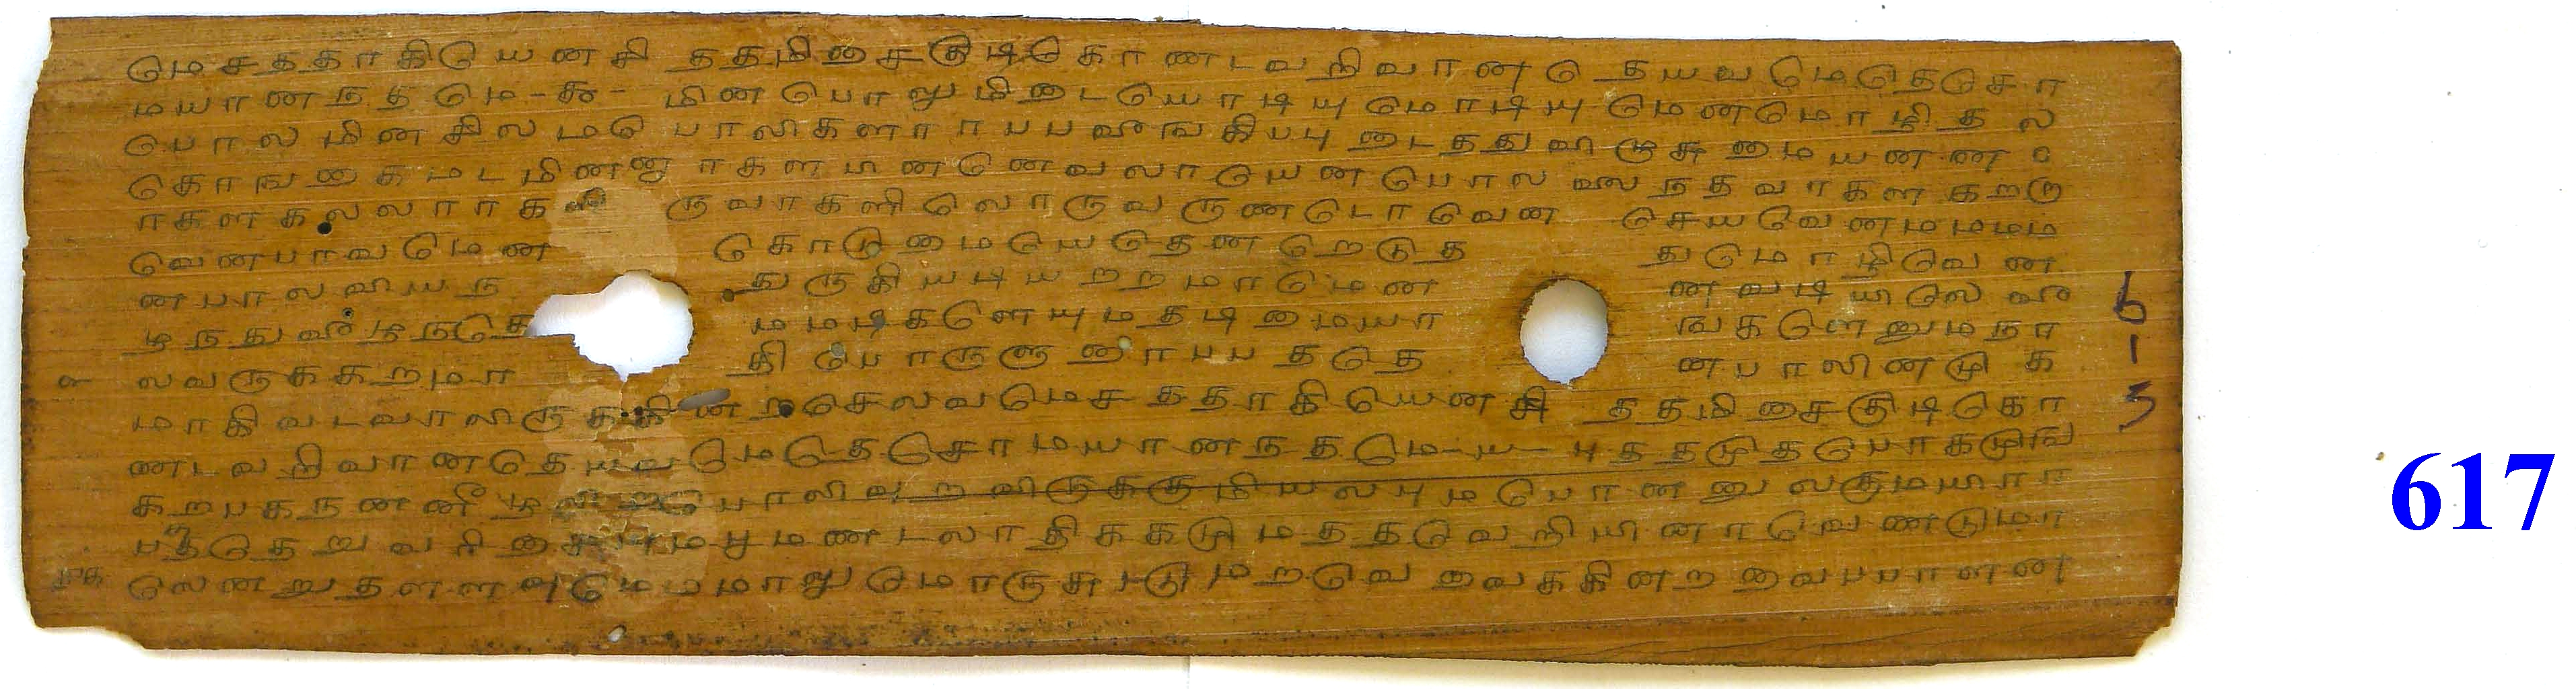 மெசததாகியெனசி ததமிசைகுடிகொணடவறிவானதெயவமெதெசொ
மயானநதமெ-௯- மினபொலுமிடையொடியுமொடியுமெனமொழிதல
பொலமினசிலமபொலிகளாரபபவீஙகிபபுடைததுவிழுசுமையனன
கொஙகைமடமினனாரகளபினனெவலாயெனபொலவலநதவரகளகறற
ரகளகலலாரகள ருவரகளிலொருவருணடொவென செயவெனமமமம
வெனபாவமென கொடுமையெதென றெடுத துமொழிவென
னபாலவியந துருகியடியறறமரமென னவடியிலெவீ
ழநதுவீழநதெ மமடிகளெயுமதடிமையா ஙகளெனுமநா
லவருககறமா திபொருளுரைபப தெத னபாலினமுக
மாகிவடவாலிருககினறசெலவமெச ததாகியெனசி ததமிசைகுடிகொ
ணடவறிவானதெயவமெதெசொமயானநதமெ-ய- புததமுதபொகமுங
கறபகநனனீழலி பொலிவுறவிருககுமியலபுமபொனனுலகுமயிரா
தெறுவரிசையுமபூமணடலாதிககமுமததவெறியினாவெணடுமா
லெனறுதளளவுமெமமாலுமொருசுடுமறவெ வைககினறவைபபாளன
617